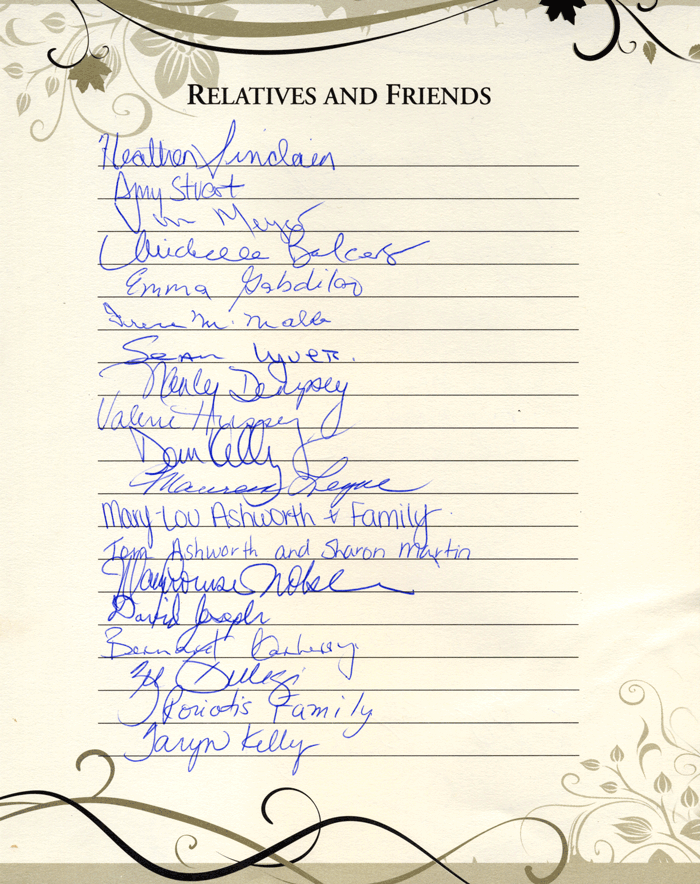 RELATIVES AND FRIENDS
Heather Sinclair
Amy Stuart
Jim Meyer
Michelle Balcers
Emma Gabdilao
Irene M. Malla
Sean
Dempsey
Valerie
Dom Kelly
Maureen Legue
Mary-Lou Ashworth & Family
Tom Ashworth and Sharon Martin
Marylouise Nobel
David Joseph
Bernard
Poriotis Family
Taryn Kelly